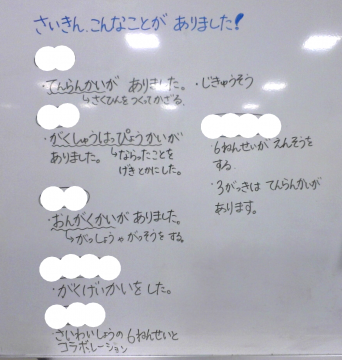 さいきん、こんなことが ありました!
・てんらんかいが ありました。
↳さくひんをつくってかざる。
・がくしゅうはっぴょうかいが
ありました。↳ならったことを
げきとかにした。
・おんがくかいが ありました。
↳がっしょうやがっそうをする。
・がくげいかいをした。
・さいわいしょうの6ねんせいと
コラボレーション
・じきゅうそう
・6ねんせいがえんそうを
する。
・3がっきは てんらんかいが
あります。